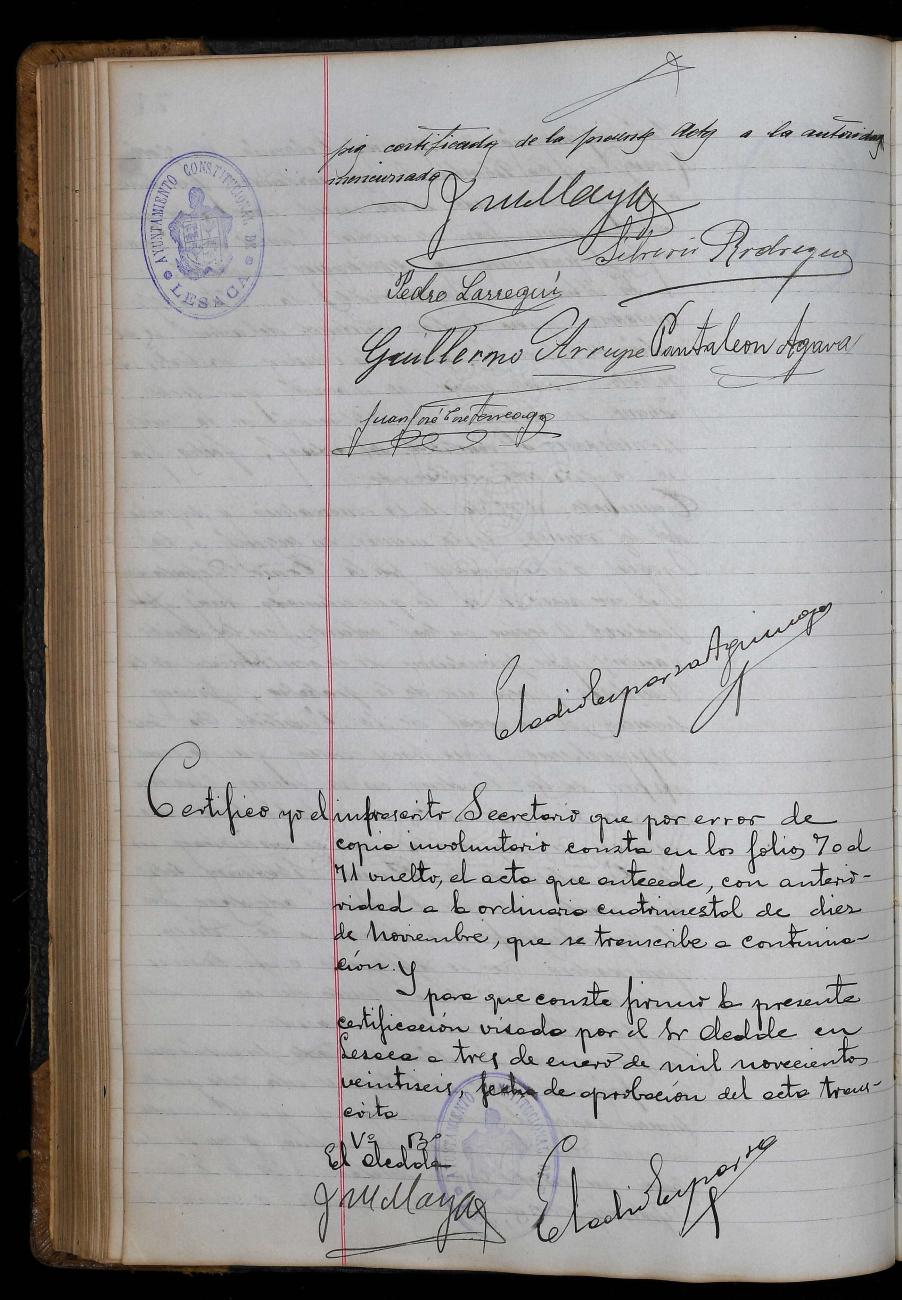 pia certificada de la presente Acta a la autoridad
mencionada
J M Maya
AYUNTAMIENTO CONSTITUCIONAL DE
LESACA
Silverio Rodriguez
Pedro Larregui
Guillermo Arrupe Pantaleon Agara
Juan José
Eladio Esparza Aguinaga
Certifico yo el infrascrito Secretario que por error de
copia involuntario consta en los folios 70 al
71 vuelto, el acta que antecede, con anterio-
ridad a la ordinaria cuatrimestral de diez
de Noviembre, que se transcribe a continua-
ción. Y
para que conste firmo la presente
certificación visada por el Sr Alcalde en
Lesaca a tres de enero de mil novecientos
veintiseis, fecha de aprobación del acta trans-
cirta
Vº Bº
El Alcalde
J M Maya
Eladio Esparza
AYUNTAMIENTO CONSTITUCIONAL